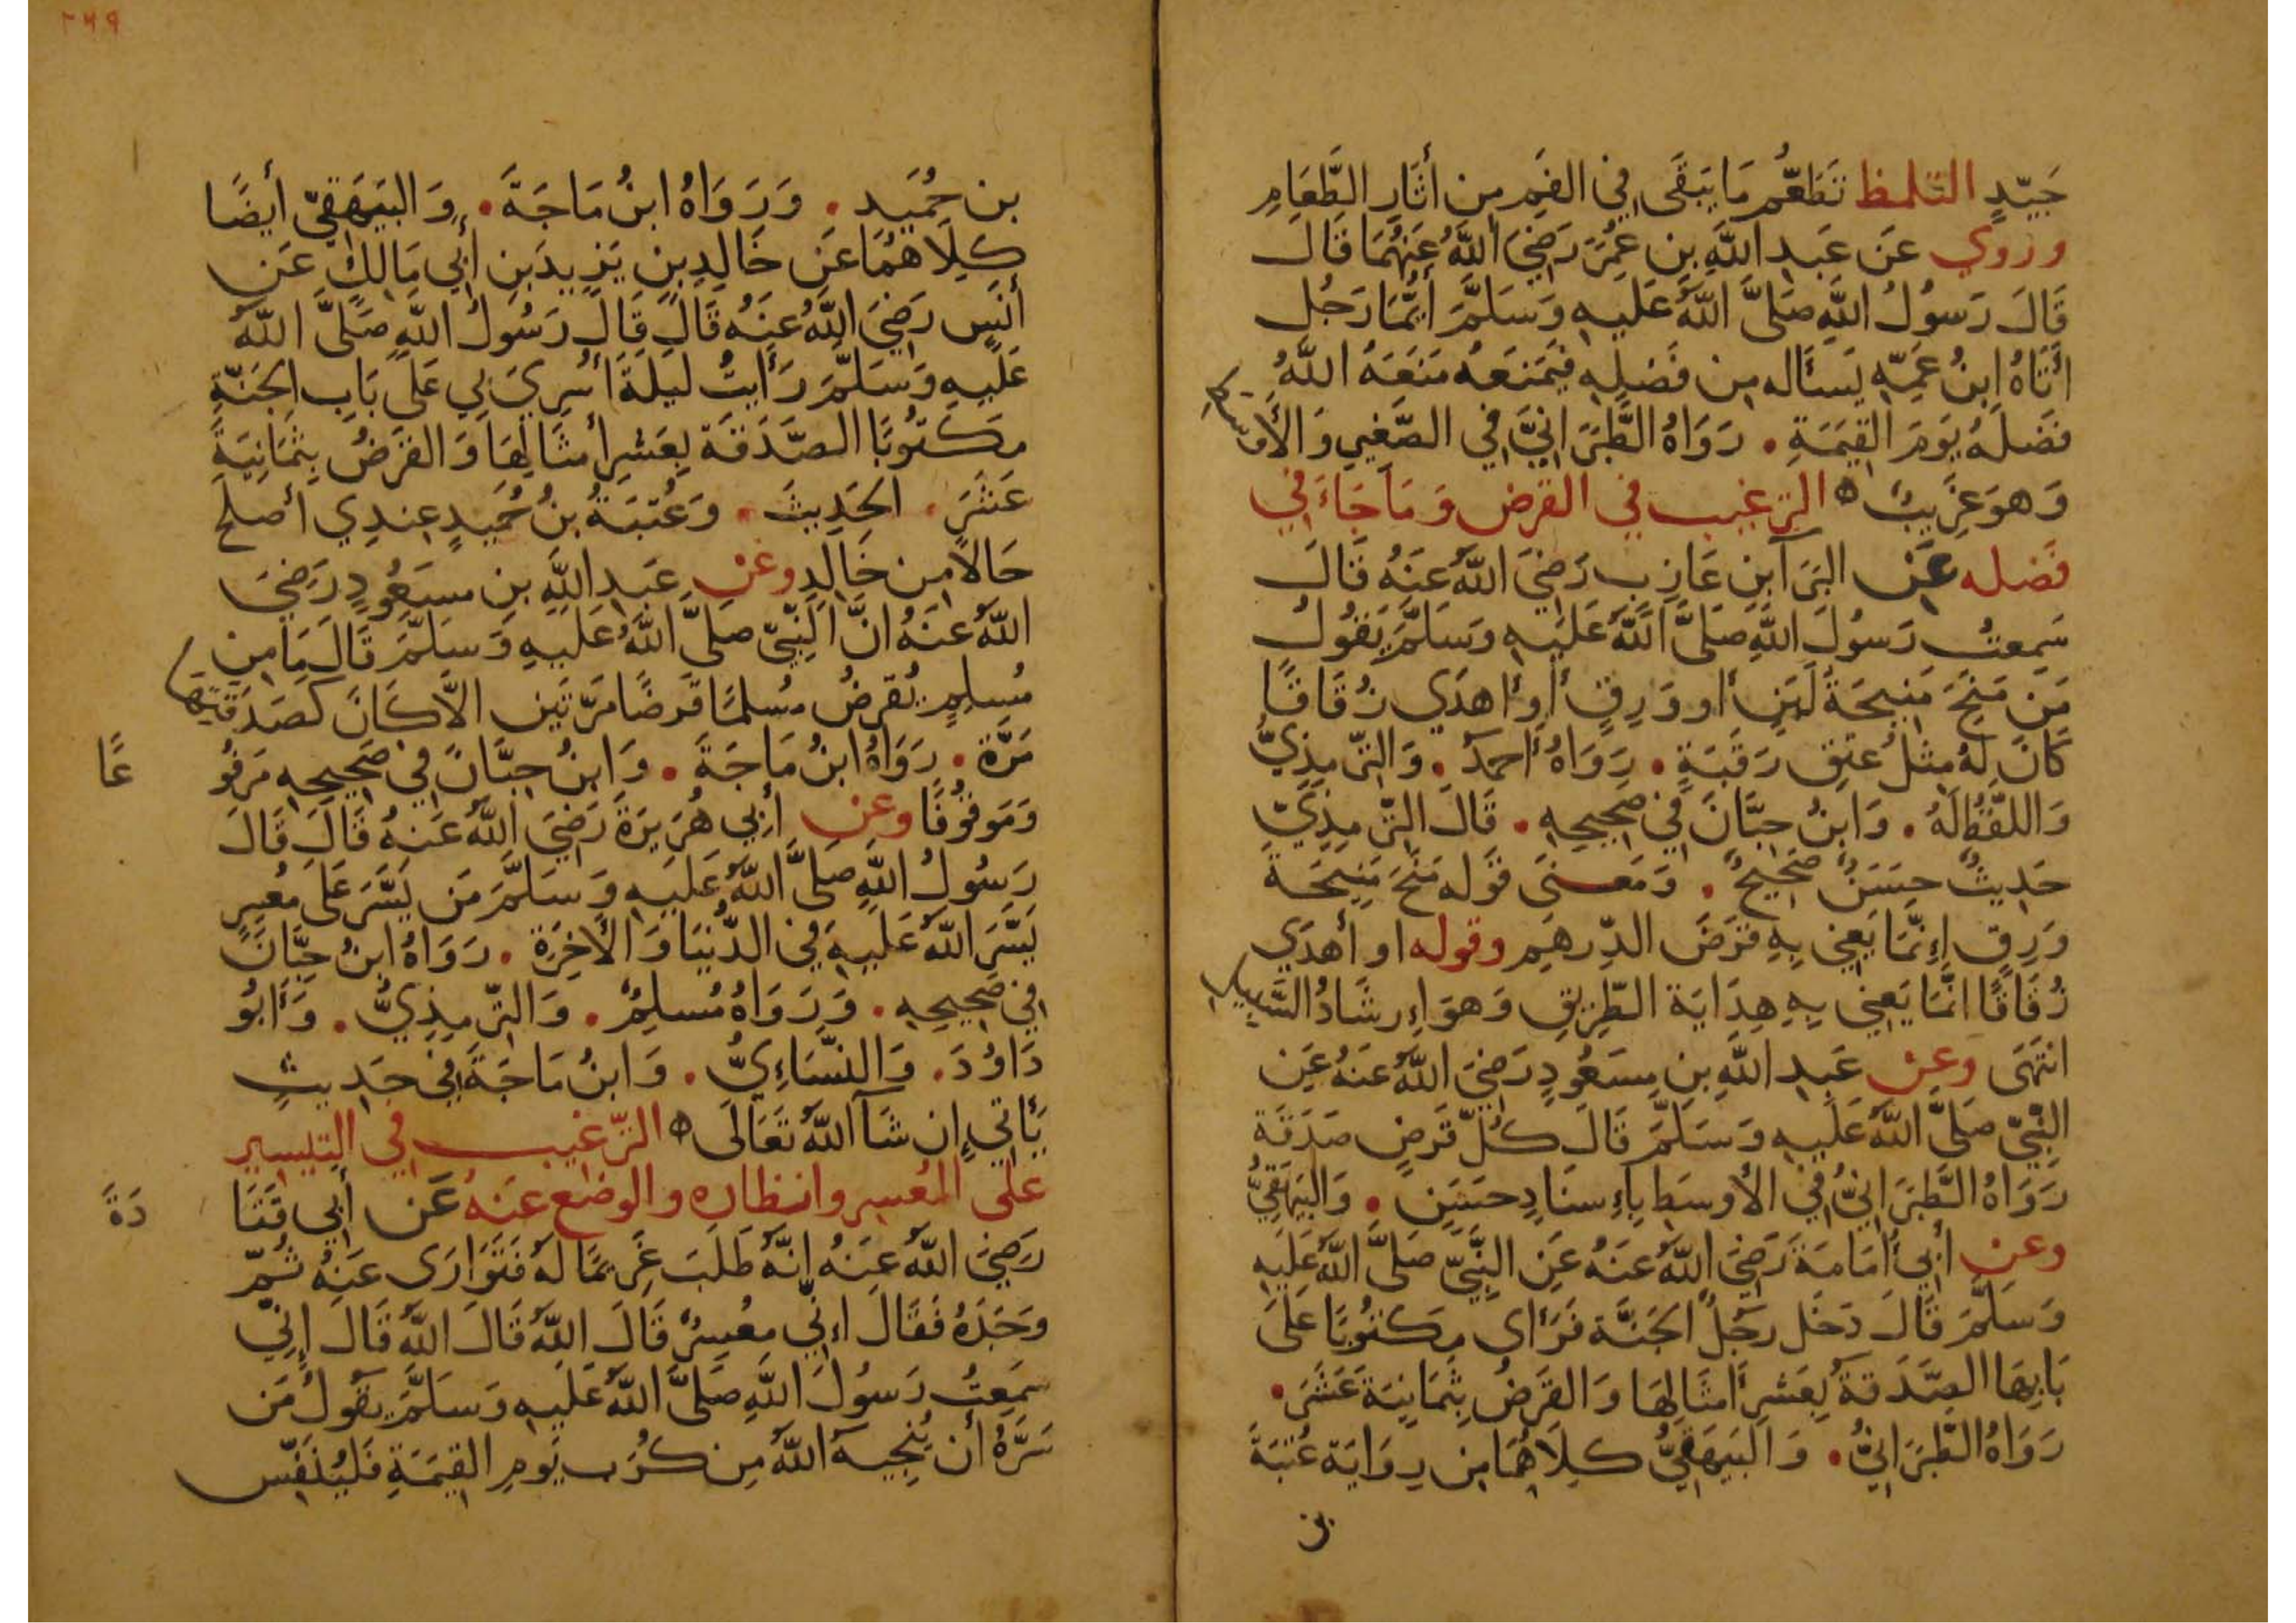 جَيّدٍ التّلمظ تَطَعُّم مَا يَبقَى فِي الفَمِ مِن أثَارِ الطَّعَامِ
وروي عَن عَبدِ اللَّهِ بنِ عُمَرَ رَضِيَ اللَّهُ عَنهُمَا قَالَ
قَالَ رَسُولُ اللَّهِ صَلَّى اللَّهُ عَلَيهِ وَسَلَّمَ أيُّمَا رَجُل
اتَاهُ ابنُ عَمِّهِ يَسألُه مِن فَضلِهِ فَيمَنَعَهُ مَنَعَهُ اللَّهُ
فَضلَهُ يَومَ القِيمَةِ . رَوَاهُ الطَّبَرَانِيُّ فِي الصَّغِيرِ وَالأوسَطِ
وَهوَ غَرِيبٌ ه الترغيب في القرض وَمَا جَاءَ فِي
فَضله عَن البَرَآ بنِ عَازِبٍ رَضِيَ اللَّهُ عَنهُ قَالَ
سَمِعتُ رَسُولَ اللَّهِ صَلَّى اللَّهُ عَلَيهِ وَسَلَّمَ يَقُولُ
مَن مَنَحَ مَنِيحَةَ لَبَنٍ أو وَرِقٍ أو أهدَي زُقَاقًا
كَانَ لَهُ مِثلُ عِتقِ رَقَبَةٍ . رَوَاهُ أحمدُ . وَالتِّرمِذِيُّ
وَاللَّفظُ لَهُ . وَابنُ حِبَّانَ فِي صَحِيحِهِ . قَالَ التِّرمِذِيُّ
حَدِيثٌ حَسَنٌ صَحِيحٌ . وَمَعنَى قَولِه مَنَحَ مَنِيحَةَ
وَرِقٍ إِنَّمَا يَعنِي بِهِ قَرضَ الدِّرهَمِ وقوله او أهدَي
زُقَاقًا انَّمَا يَعنِي بِهِ هِدَايَة الطَّرِيقِ وَهوَ إِرشَادُ السَّبِيلِ
انتَهَى وَعَن عَبدِ اللَّهِ بنِ مسعُودٍ رَضِيَ اللَّهُ عَنهُ عَنِ
النَّبِيِّ صَلَّى اللَّهُ عَلَيهِ وَسَلَّمَ قَالَ كُلُّ قَرضٍ صَدَقَة
رَوَاهُ الطَّبَرَانِيُّ فِي الأوسَطِ بِإِسنَادٍ حَسَنٍ . وَالبَيهَقِيُّ
وعن أبِي أمَامَةَ رَضِيَ اللَّهُ عَنهُ عَنِ النَّبِيِّ صَلَّى اللَّهُ عَلَيهِ
وَسَلَّمَ قَالَ دَخَل رَجُلٌ الجَنَّة فَرَأى مَكتُوبًا عَلَى
بَابِهَا الصَّدَقَةُ بِعَشرِ أمثَالِهَا وَالقَرضُ بِثَمَانِيَةَ عَشَرَ .
رَوَاهُ الطَّبَرَانِيُّ . وَالبَيهَقِيُّ كِلَاهُمَا مِن رِوَايَة عُتبَةَ
بن
٢٦٩
بن حُمَيد . وَرَوَاهُ ابنُ مَاجَةَ . وَالبَيهَقِيّ أيضًا
كِلَاهُمَا عَن خَالِدِ بنِ يَزِيدَ بنِ أبِي مَالِكٍ عَن
أنَسٍ رَضِيَ اللَّهُ عَنهُ قَالَ قَالَ رَسُولُ اللَّهِ صَلَّى اللَّهُ
عَلَيهِ وَسَلَّمَ رَأيتُ لَيلَةَ أُسرِيَ بِي عَلَى بَابِ الجَنَّةِ
مَكتُوبًا الصَّدَقَة بِعَشرِ أمثَالِهَا وَالقَرضُ بِثَمَانِيَةَ
عَشَرَ . الحَدِيثَ . وَعُتبَةُ بنُ حُمَيدٍ عِندِي أصلَح
حَالًا مِن خَالِدٍ وعَن عَبدِ اللَّهِ بنِ مسعُودٍ رَضِيَ
اللَّهُ عَنهُ انَّ النَّبِيّ صَلَّى اللَّهُ عَلَيهِ وَسَلَّمَ قَالَ مَا مِن
مُسلِمٍ يُقرِضُ مُسلِمًا قَرضًا مَرَّتَينِ الَّا كَانَ كَصَدَقَتِهَا
مَرَّة . رَوَاهُ ابنُ مَاجَةَ . وَابنُ حِبَّانَ فِي صَحِيحِهِ مَرفُو
عًا
وَمَوقُوفًا وعن أبِي هُرَيرَةَ رَضِيَ اللَّهُ عَنهُ قَالَ قَالَ
رَسُولُ اللَّهِ صَلَّى اللَّهُ عَلَيهِ وَسَلَّمَ مَن يَسَّرَ عَلَى مُعسِرٍ
يَسَّرَ اللَّهُ عَلَيهِ فِي الدُّنيَا وَالأخِرَةِ . رَوَاهُ ابنُ حِبَّانَ
فِي صَحِيحِهِ . وَرَوَاهُ مُسلِمٌ . وَالتِّرمِذِيُّ . وَأبُو
دَاوُدَ . وَالنَّسَاءِيُّ . وَابنُ مَاجَةَ فِي حَدِيثٍ
يَأتِي إِن شَآ اللَّهُ تَعَالَى ه الترغيب في التيسير
على المعسر وانظاره والوضع عَنهُ عَن أبِي قَتَا
دَةَ
رَضِيَ اللَّهُ عَنهُ انَّهُ طَلَبَ غَرِيمًا لَهُ فَتَوَارَى عَنهُ ثُمّ
وَجَدَهُ فَقَالَ إنِّي مُعسِرٌ قَالَ اللَّهُ قَالَ اللَّهُ قَالَ إنِّي
سَمِعتُ رَسُولَ اللَّهِ صَلَّى اللَّهُ عَلَيهِ وَسَلَّمَ يَقُولُ مَن
سَرَّهُ أن يُنجِيَهُ اللَّهُ مِن كُرَبِ يَومِ القِيمَةِ فَليُنَفِّس